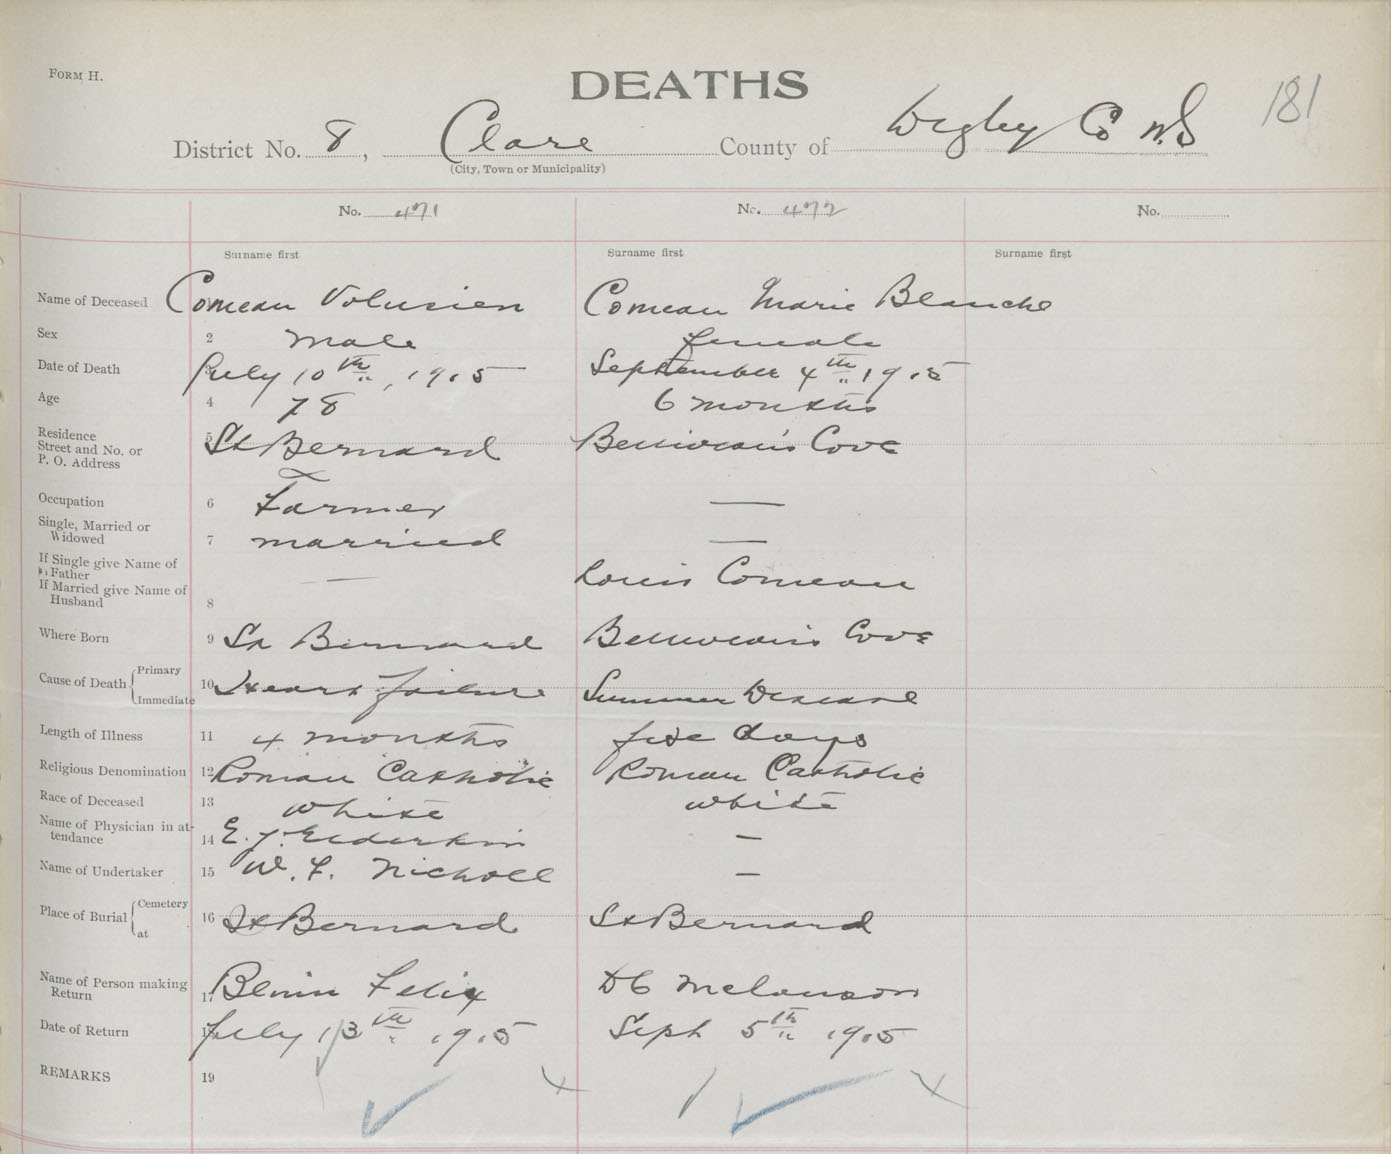 FORM H.
DEATHS
181
District No. 8, Clare County of Digby Co N.S
(City, Town or Municipality)
No. 471 No. 472 No.
Surname first Surname first Surname first
Name of Deceased Comeau Volusien Comeau Marie Blanche
Sex 2 male female
Date of Death July 10th, 1915 September 4th 1915
Age 4 78 6 months
Residence
Street and No. or 5 St Bernard Belliveau's Cove
P. O. Address
Occupation 6 Farmer —
Single, Married or
Widowed 7 married —
If Single give Name of
Father — Louis Comeau
If Married give Name of
Husband 8
Where Born 9 St Bernard Belliveau's Cove
Cause of Death { Primary
Immediate 10 Heart failure Summer Disease
Length of Illness 11 4 months five days
Religious Denomination 12 Roman Catholic Roman Catholic
Race of Deceased 13 white white
Name of Physician in at-
tendance 14 E. F. Elderkin —
Name of Undertaker 15 W. F. Nicholl —
Place of Burial { Cemetery
at 16 St Bernard St Bernard
Name of Person making
Return 17 Felix D C Melanson
Date of Return July 13th 1915 Sept 5th 1915
REMARKS 19